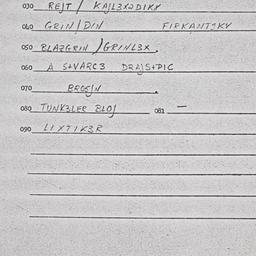 030 REJT / KAJL3X2DIKY
060 GRIN/DIN FIRKANTSKY
050 BLAZGRIN / GRINL3X.
060 A SVARC3 DRAJSTPIC
070 BROSJN.
080 TUNK3LER BLOJ 081 —
090 LIXTIK3R